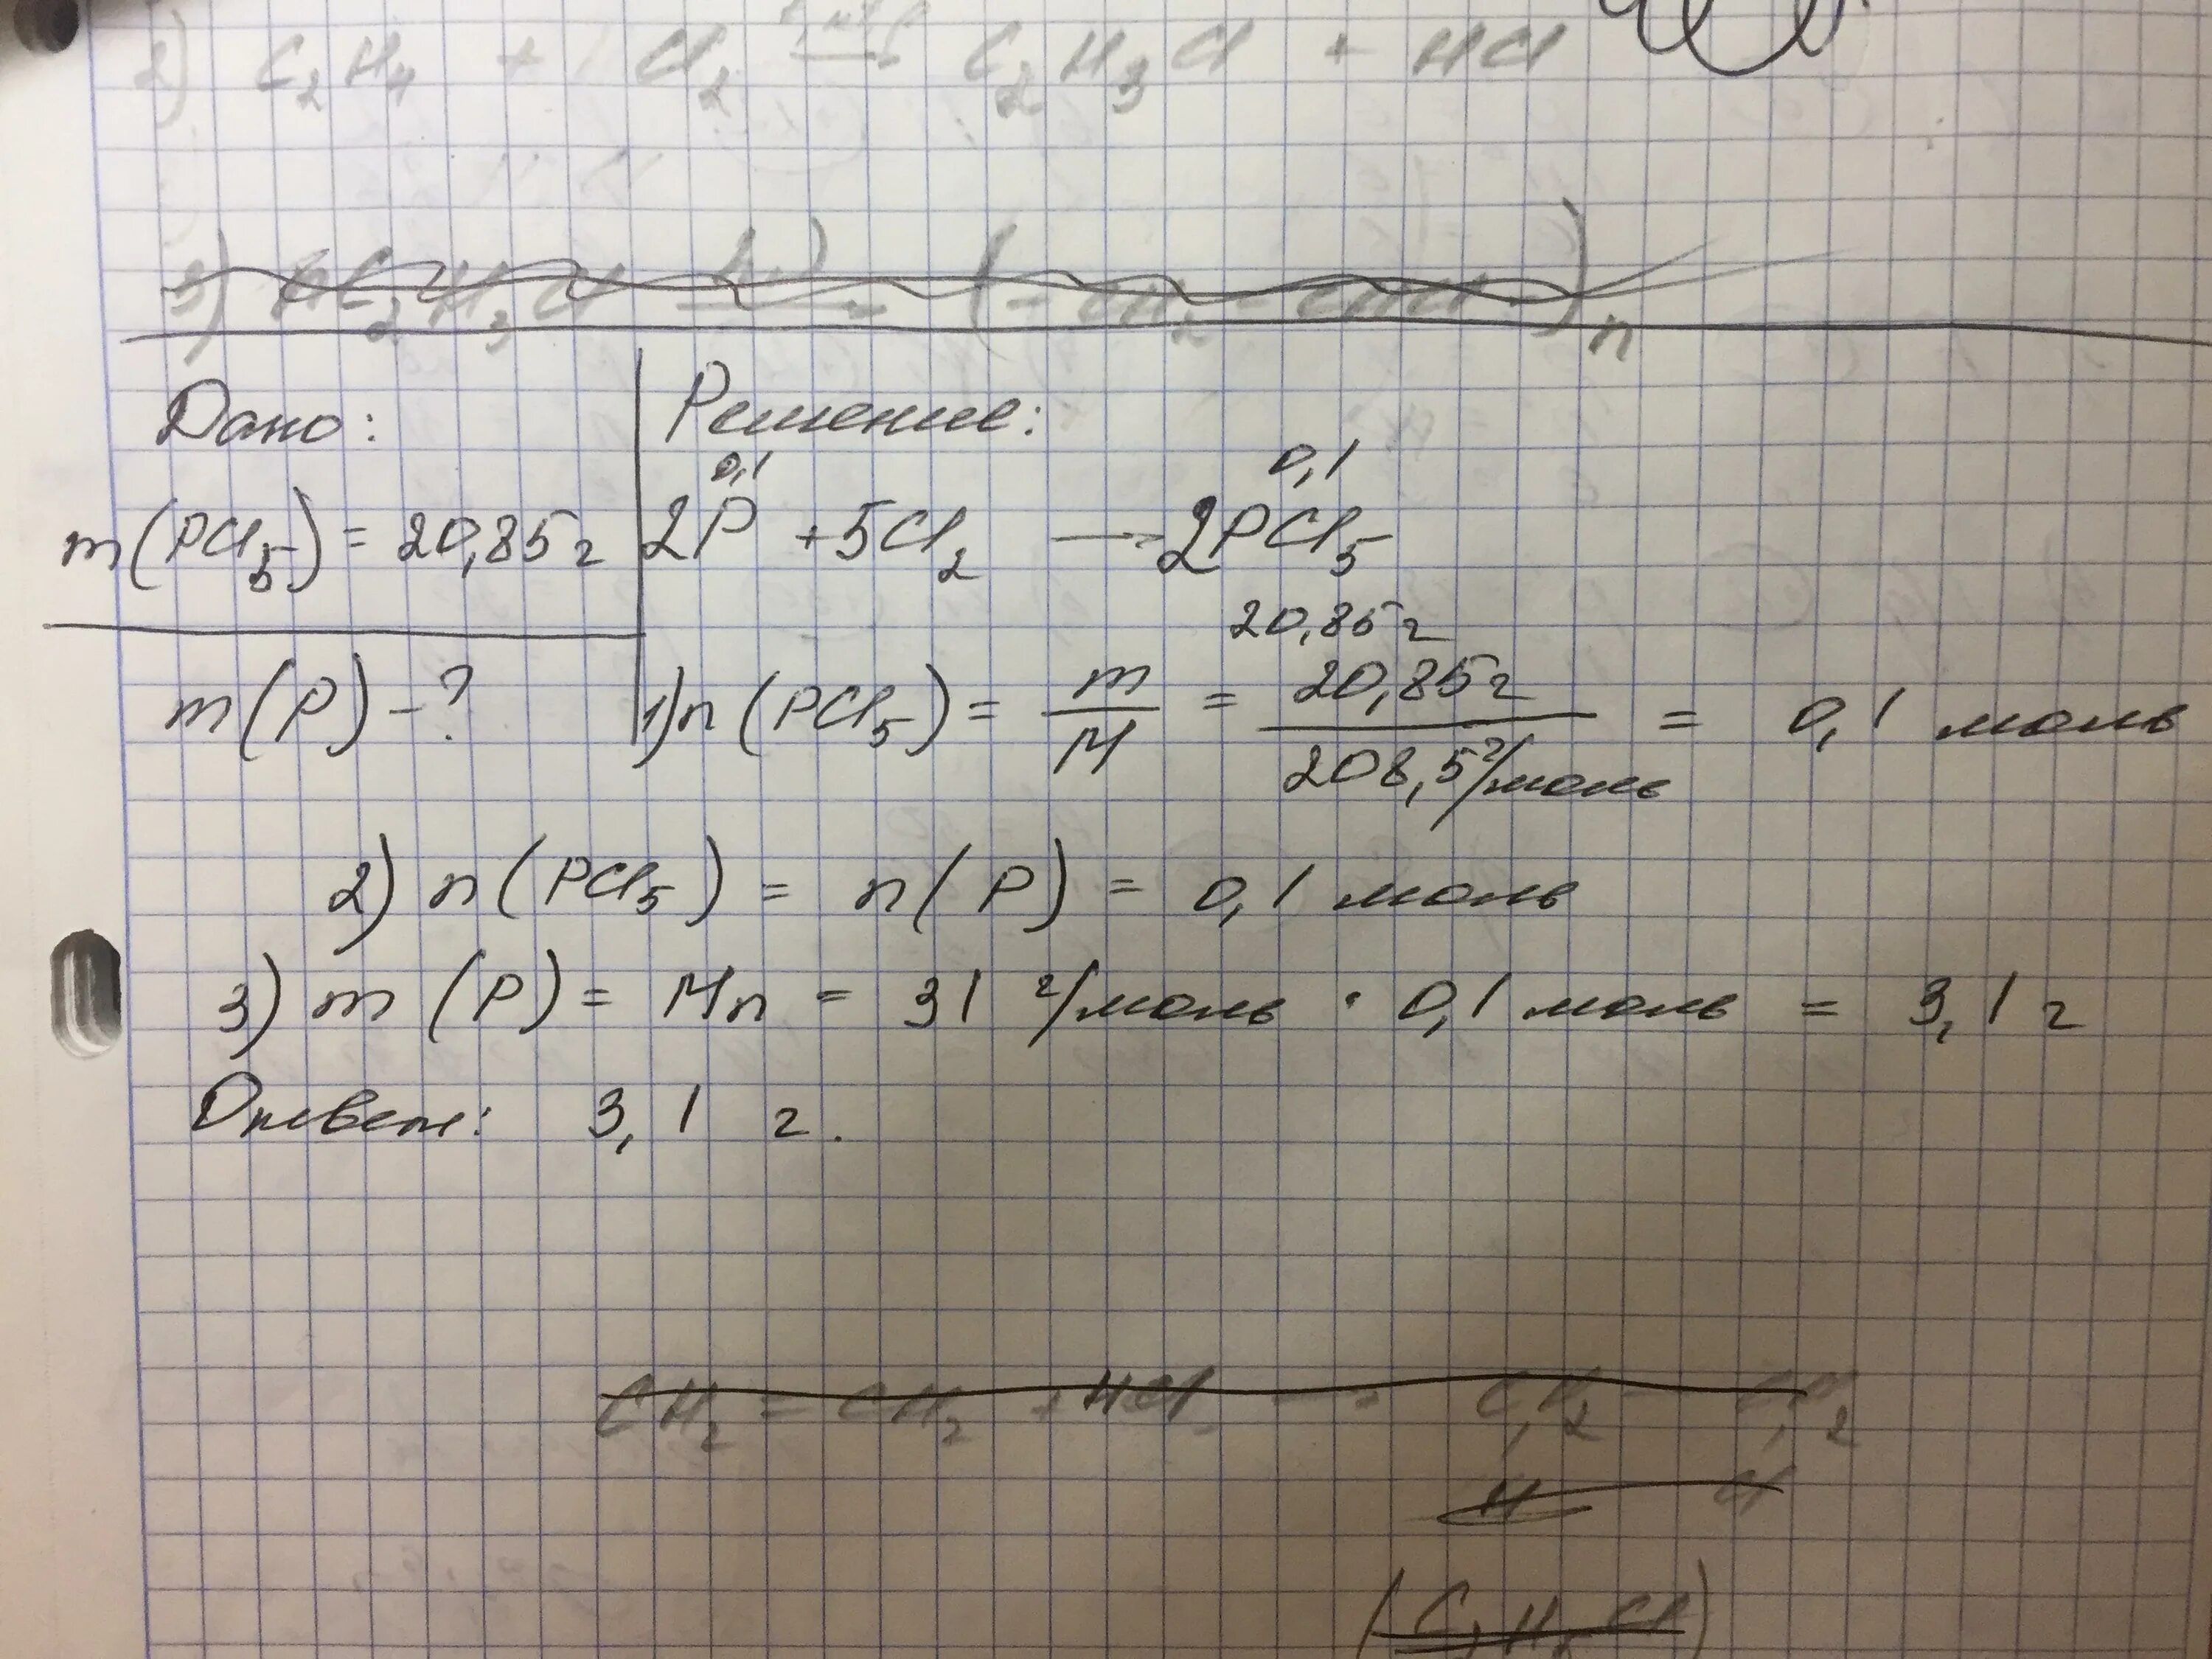 2) C₂H₄ + Cl₂ → C₂H₃Cl + HCl
3) C₂H₃Cl → (-CH₂-CHCl-)n
Дано:
m(PCl₅) = 20,85 г
m(P) - ?
Решение:
0,1 0,1
2P + 5Cl₂ → 2PCl₅
20,85 г
1) n(PCl₅) = m/M = 20,85 г / 208,5 г/моль = 0,1 моль
2) n(PCl₅) = n(P) = 0,1 моль
3) m(P) = Mn = 31 г/моль · 0,1 моль = 3,1 г
Ответ: 3,1 г.
CH₂ = CH₂ + HCl → CH₂ - CH₂
H Cl
(C₂H₅Cl)